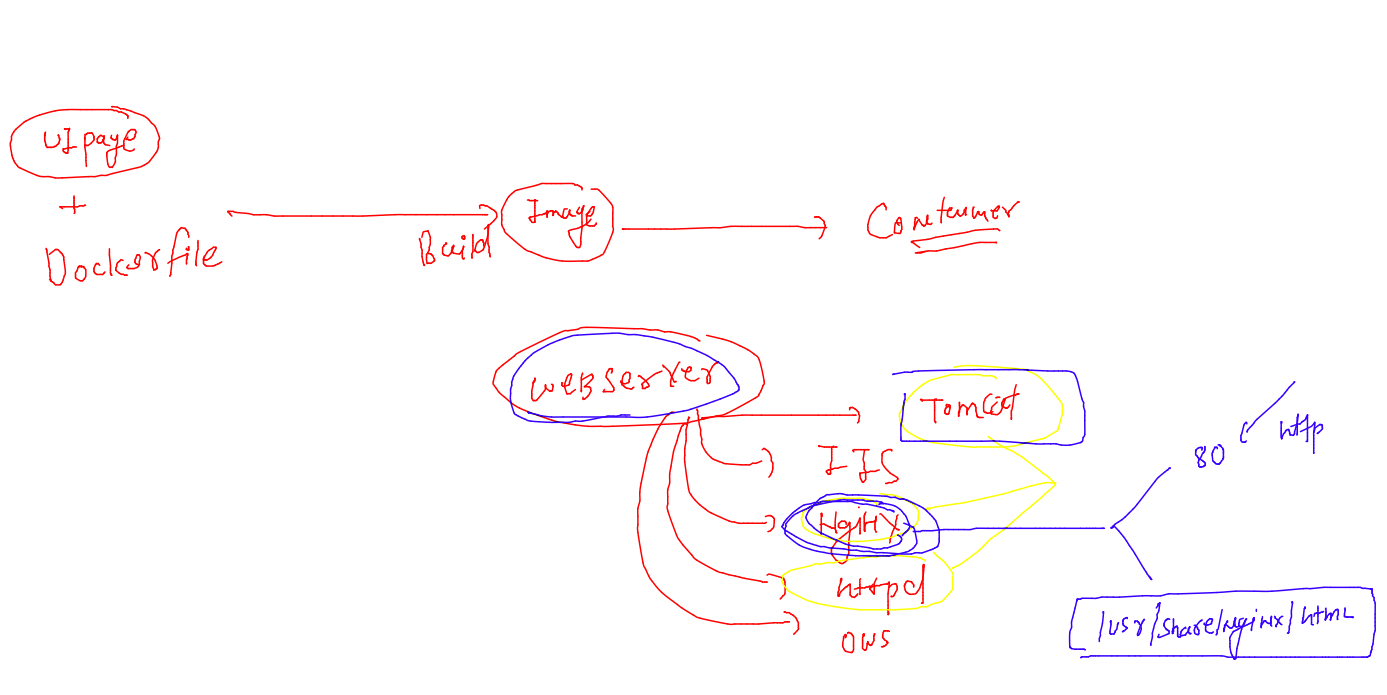 UI page
+
Dockerfile
Build
Image
Container
WEB Server
Tomcat
IIS
NgiNX
httpd
OWS
80
http
/usr/share/nginx/html